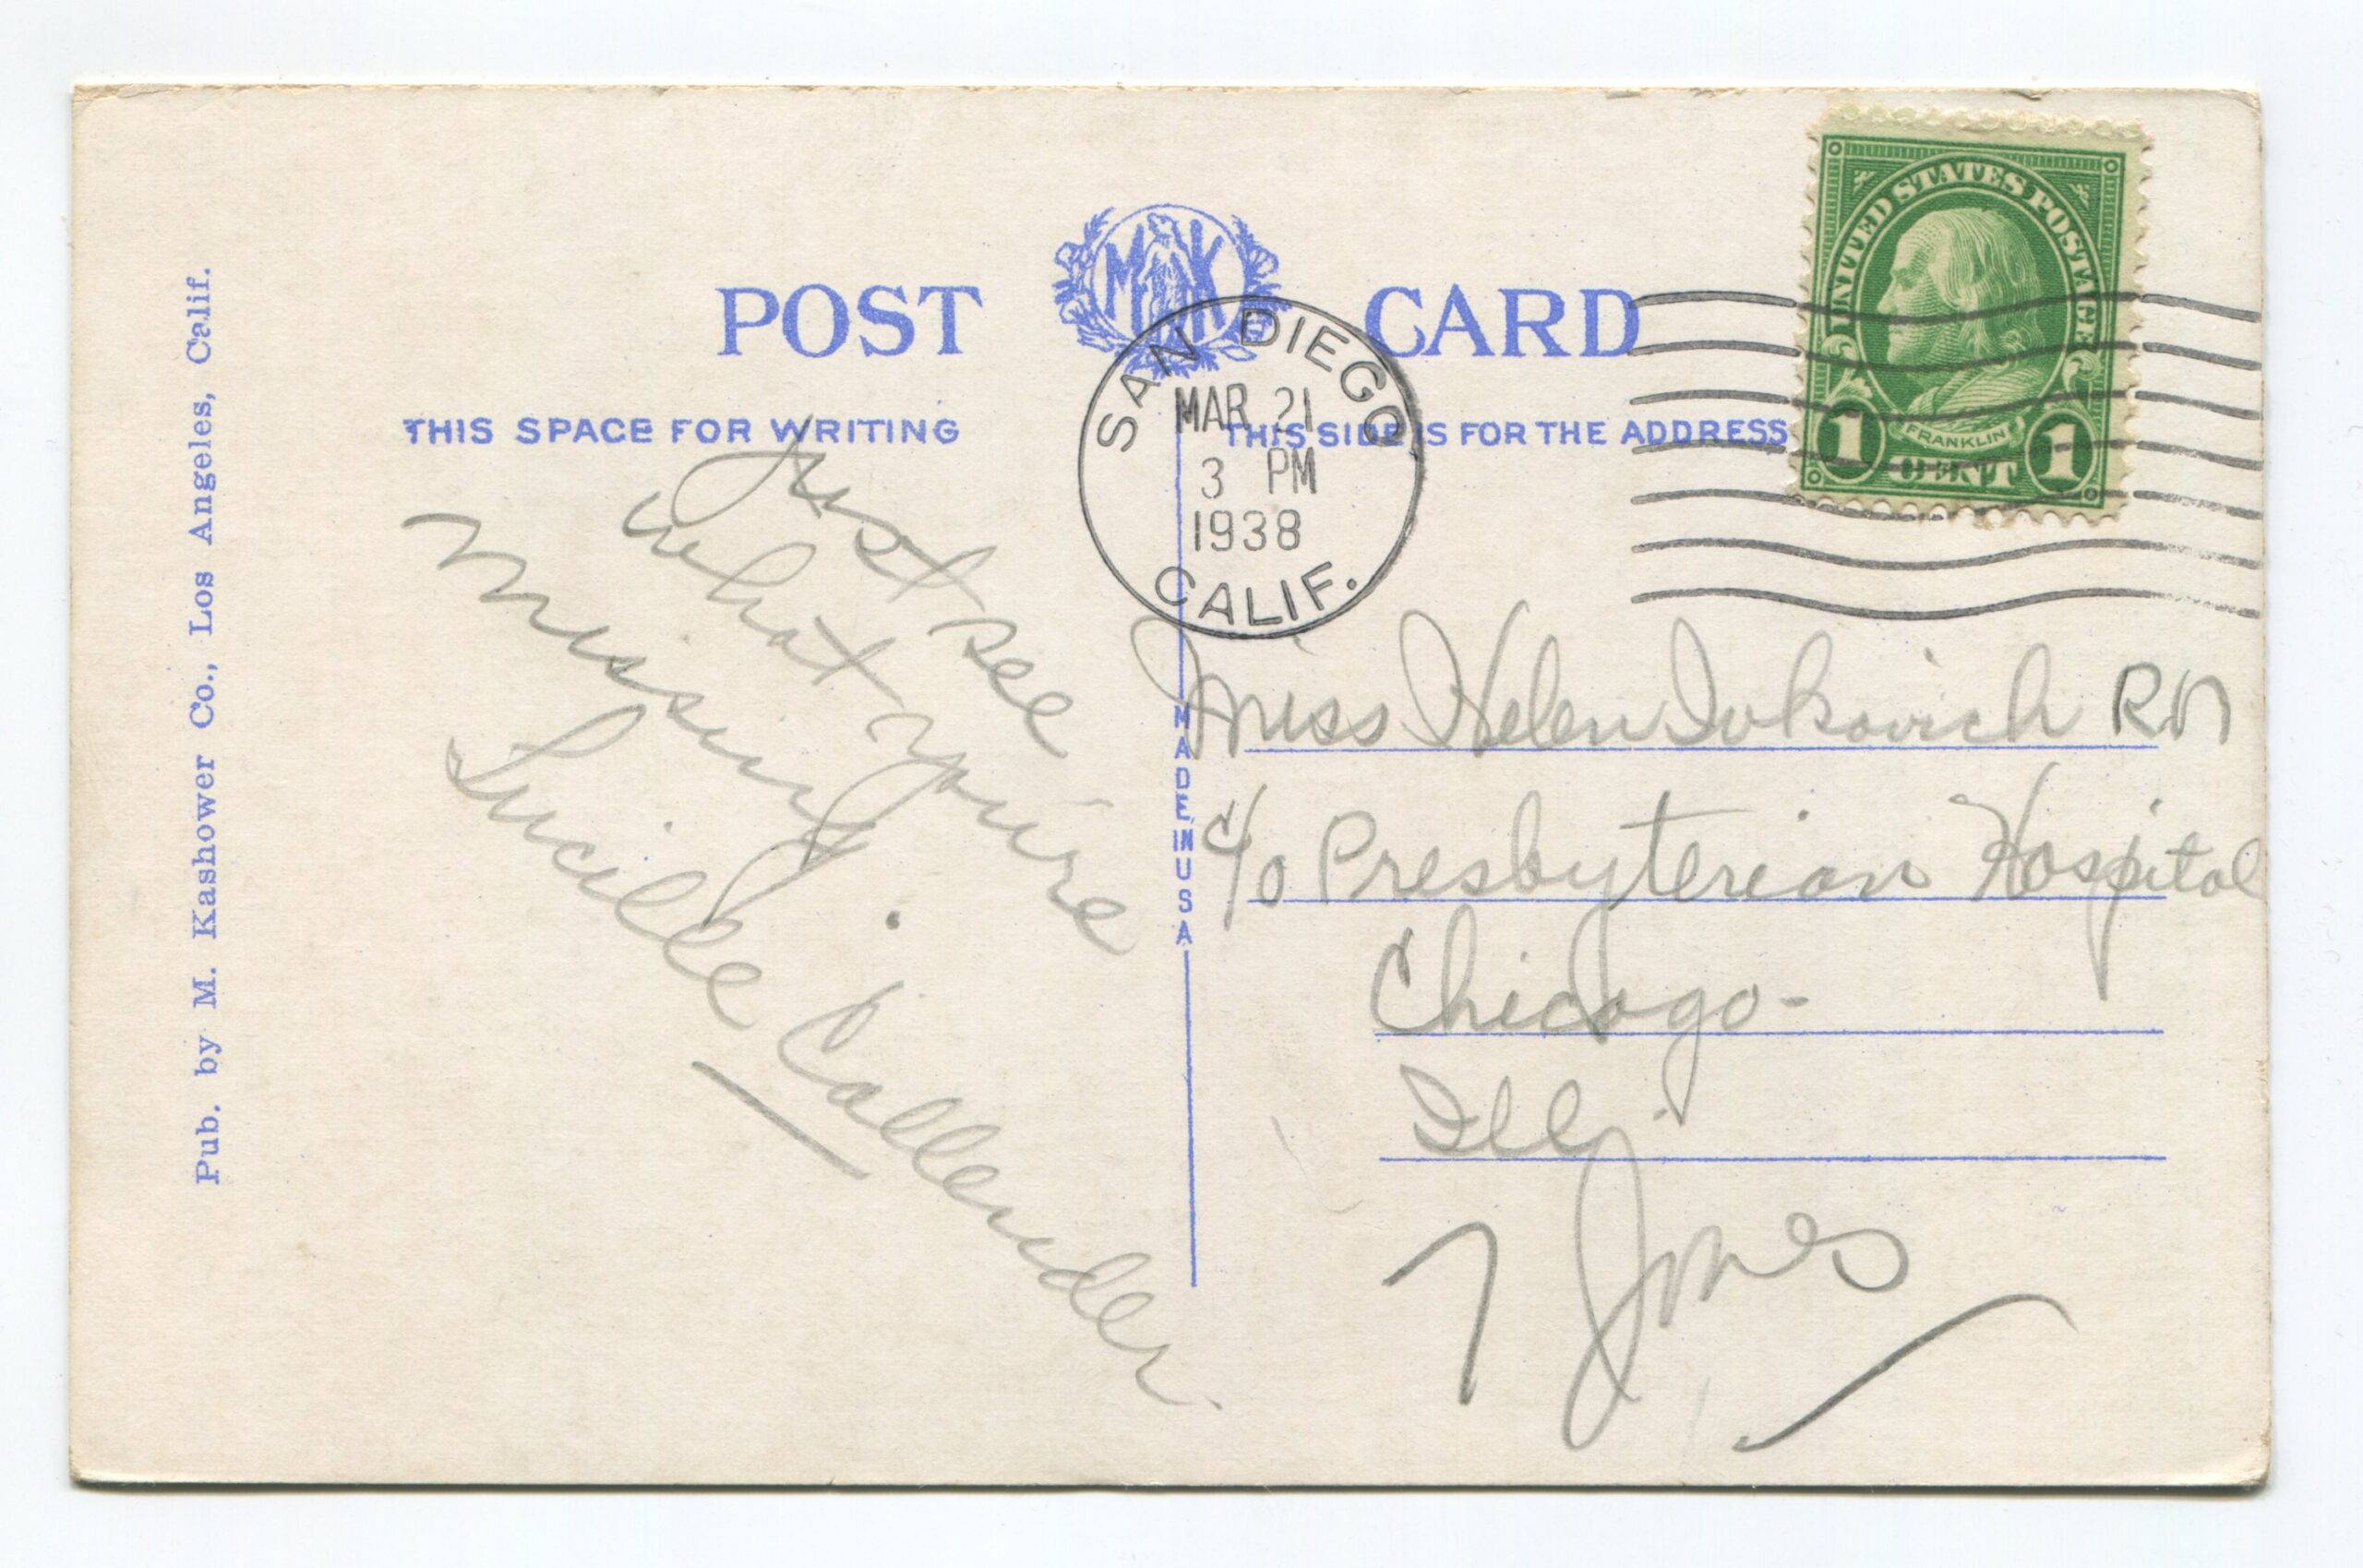 POST CARD
MK
THIS SPACE FOR WRITING
THIS SIDE IS FOR THE ADDRESS
SAN DIEGO
MAR 21
3 PM
1938
CALIF.
UNITED STATES POSTAGE
FRANKLIN
1 CENT 1
Pub. by M. Kashower Co., Los Angeles, Calif.
Just see
what you're
missing.
Lucille Callender
MADE IN USA
Miss Helen Ivkovich RN
c/o Presbyterian Hospital
Chicago-
Ill.
7 Jones